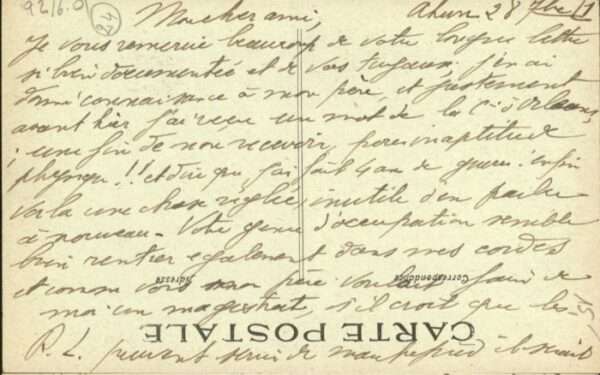 9216.0
24
Mon cher ami, Ahun 28 7bre
Je vous remercie beaucoup de votre longue lettre
si bien documentée et de vos tuyaux. j'en ai
donné connaissance à mon père, et justement
avant hier j'ai reçu un mot de la Cie d'Orléans,
; une fin de non recevoir, pour inaptitude
physique!! et dire que j'ai fait 4 ans de guerre! enfin
voilà une chose réglée, inutile d'en parler
à nouveau - Votre genre d'occupation semble
bien rentrer également dans mes cordes
et comme vous mon père voulait faire de
moi un magistrat, s'il croit que les
P. L. peuvent servir de il serait
Correspondance
Adresse
CARTE POSTALE